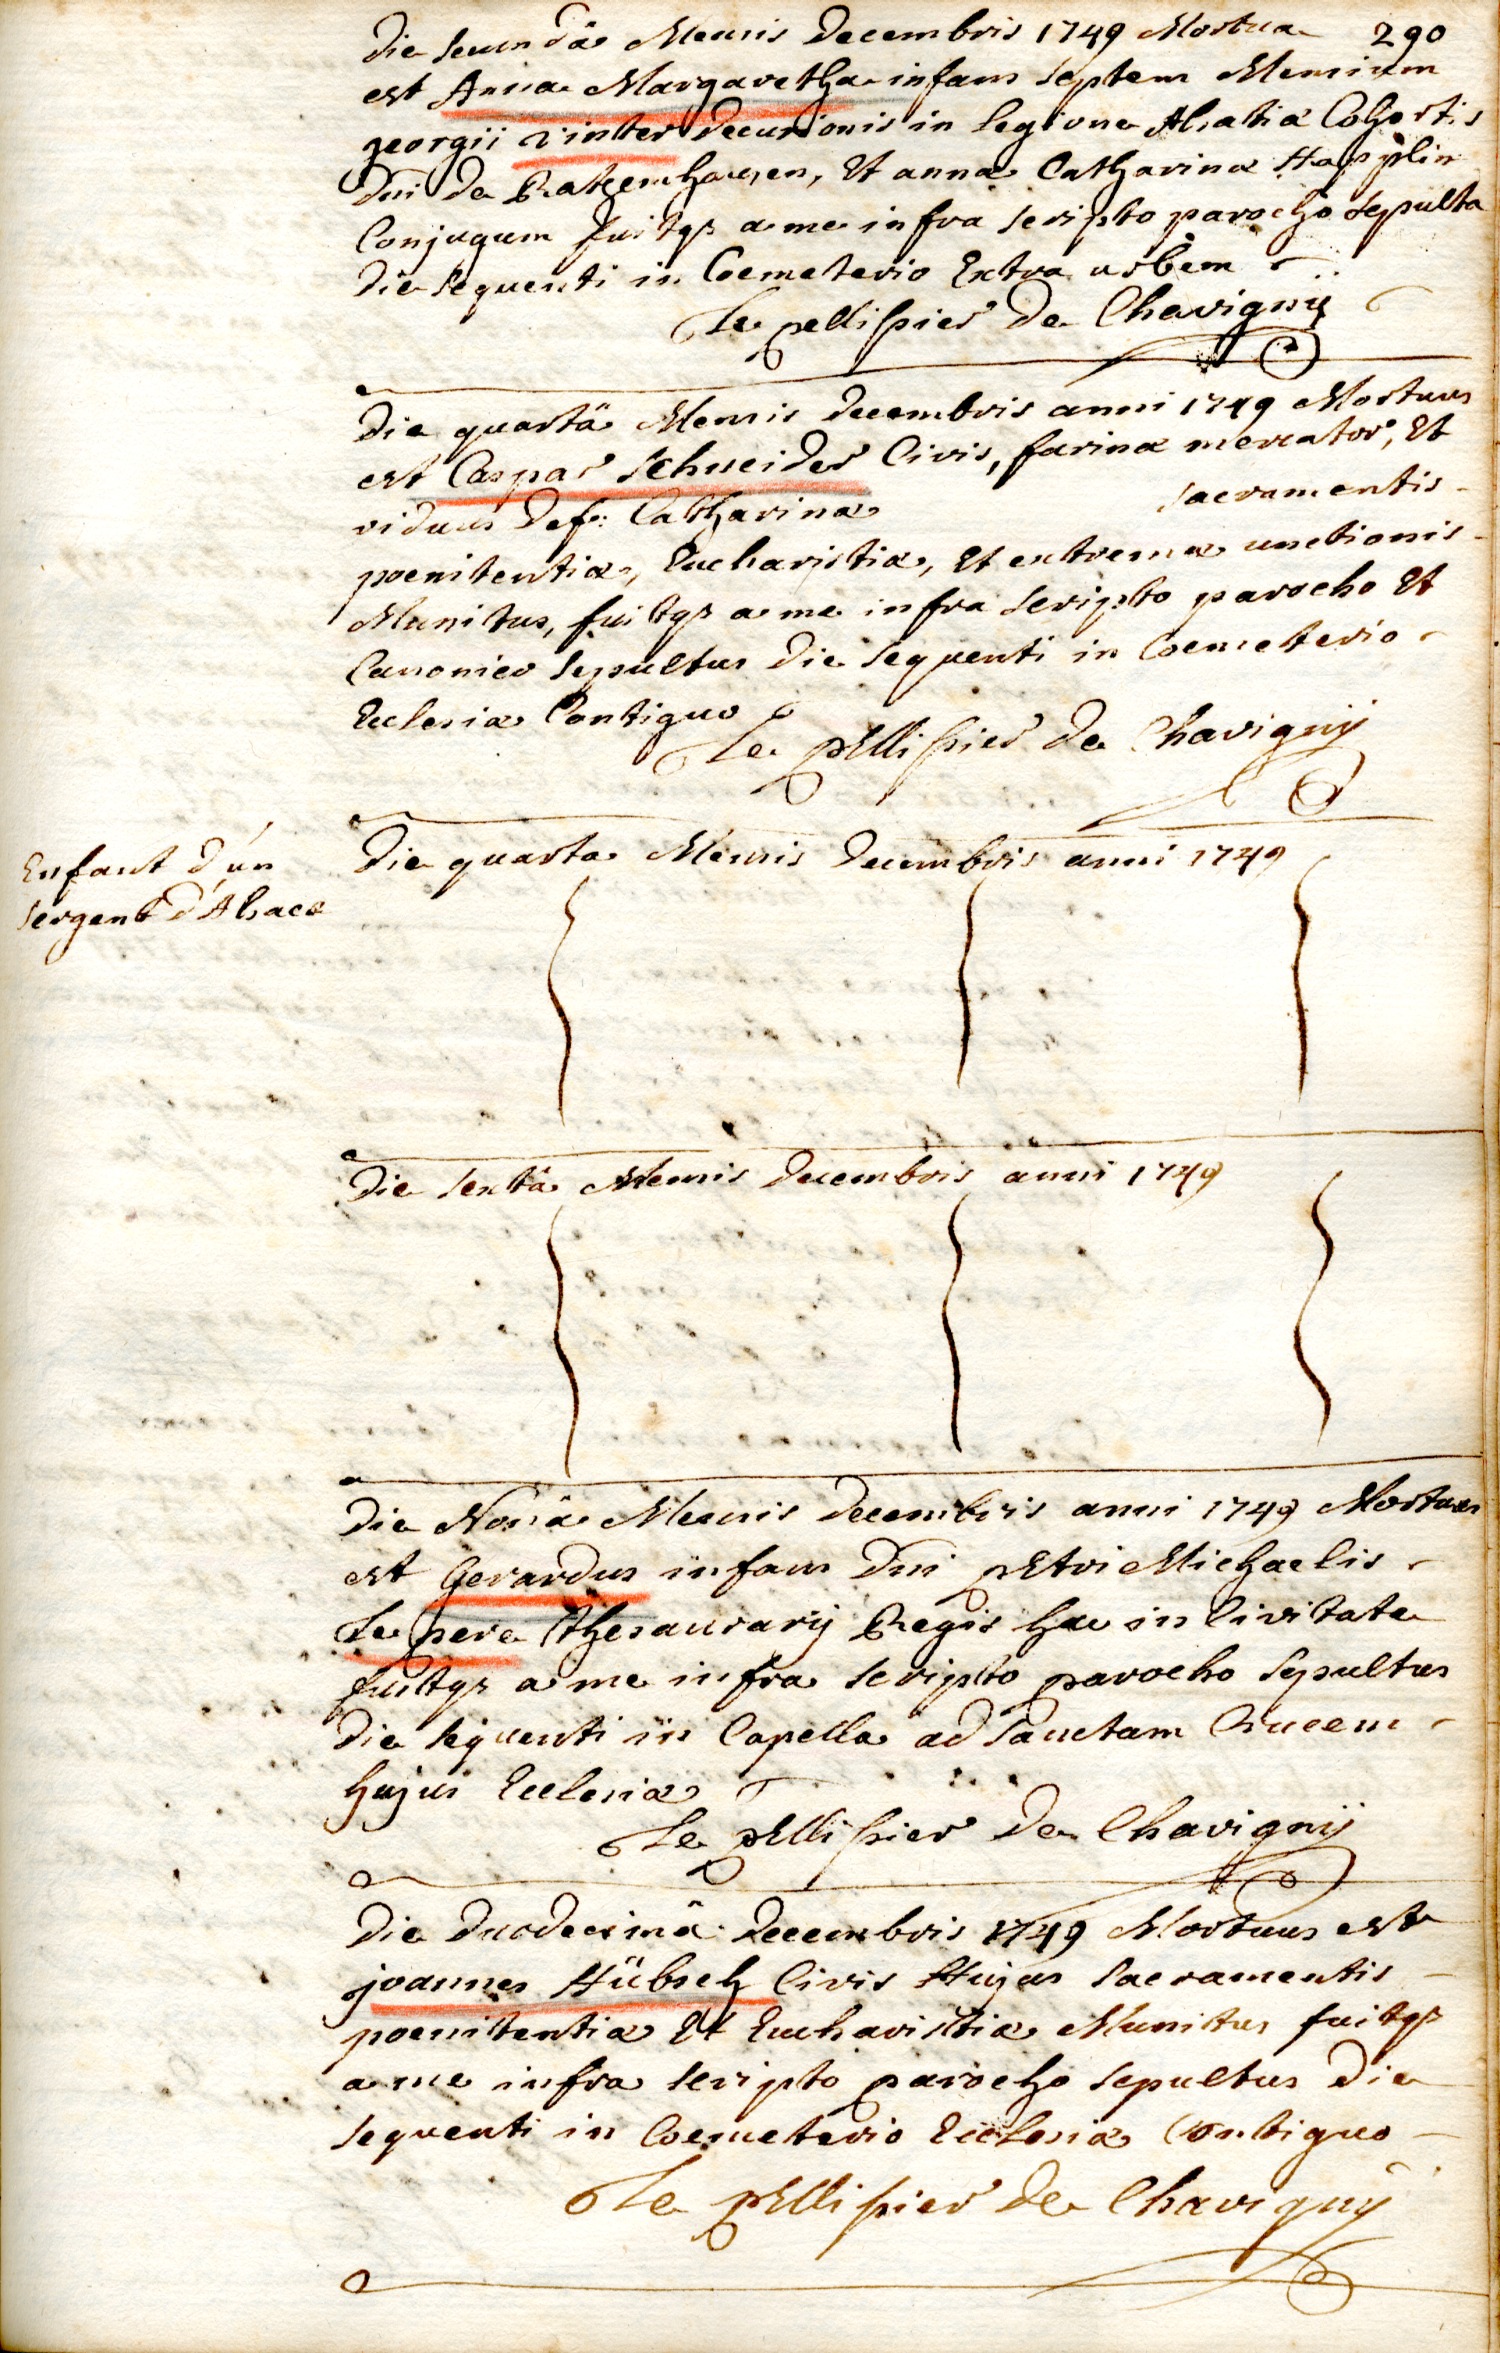 290
Die secundâ Mensis Decembris 1749 Mortua
est Anna Margaretha infans septem Mensium
georgii Winter Decurionis in legione Alsatiæ Cohortis
Dni De Ratzenhausen, Et annæ Catharinæ
Conjugum fuitqz a me infra scripto parocho sepulta
die sequenti in Coemeterio Extra urbem
Le pellissier De Chavigny
Die quartâ Mensis Decembris anni 1749 Mortuus
est Caspar Schneider Civis, farinæ mercator, Et
viduus Def: Catharinæ sacramentis
poenitentiæ, Eucharistiæ, Et extremæ unctionis
Munitus, fuitqz a me infra scripto parocho Et
Canonico sepultus die sequenti in Coemeterio
Ecclesiæ Contiguo
Le pEllissier De Chavigny
Enfant d'un
sergent d'Alsace
Die quarta Mensis Decembris anni 1749
Die sextâ Mensis Decembris anni 1749
Die Nonâ Mensis Decembris anni 1749 Mortuus
est Gerardus infans Dni pEtri Michaelis
Le pere thesaurarij Regis hac in Civitate
fuitqz a me infra scripto parocho sepultus
die sequenti in Capella ad sanctam Crucem
hujus Ecclesiæ
Le pEllissier De Chavigny
Die duodecimâ Decembris 1749 Mortuus est
joannes Hübsch Civis Hujus sacramentis
poenitentiæ Et Eucharistiæ Munitus fuitqz
a me infra scripto parocho sepultus die
sequenti in Coemeterio Ecclesiæ Contiguo
Le pEllissier De Chavigny